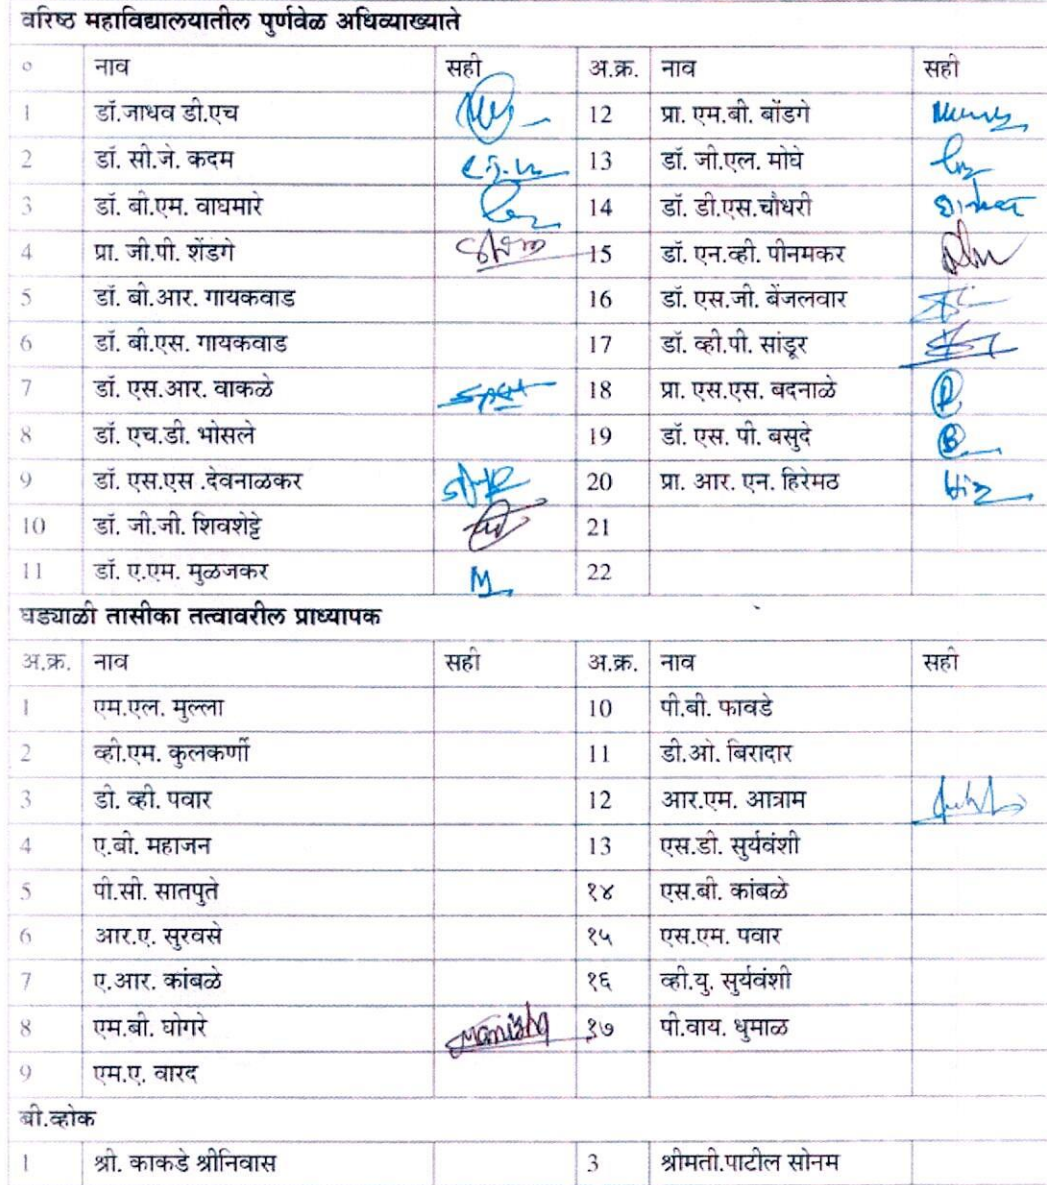 वरिष्ठ महाविद्यालयातील पुर्णवेळ अधिव्याख्याते
० नाव सही अ.क्र. नाव सही
1 डॉ.जाधव डी.एच 12 प्रा. एम.बी. बोंडगे
2 डॉ. सी.जे. कदम 13 डॉ. जी.एल. मोघे
3 डॉ. बी.एम. वाघमारे 14 डॉ. डी.एस.चौधरी
4 प्रा. जी.पी. शेंडगे 15 डॉ. एन.व्ही. पीनमकर
5 डॉ. बी.आर. गायकवाड 16 डॉ. एस.जी. बेंजलवार
6 डॉ. बी.एस. गायकवाड 17 डॉ. व्ही.पी. सांडूर
7 डॉ. एस.आर. वाकळे 18 प्रा. एस.एस. बदनाळे
8 डॉ. एच.डी. भोसले 19 डॉ. एस. पी. बसुदे
9 डॉ. एस.एस .देवनाळकर 20 प्रा. आर. एन. हिरेमठ
10 डॉ. जी.जी. शिवशेट्टे 21
11 डॉ. ए.एम. मुळजकर 22
घड्याळी तासीका तत्वावरील प्राध्यापक
अ.क्र. नाव सही अ.क्र. नाव सही
1 एम.एल. मुल्ला 10 पी.बी. फावडे
2 व्ही.एम. कुलकर्णी 11 डी.ओ. बिरादार
3 डी. व्ही. पवार 12 आर.एम. आत्राम
4 ए.बी. महाजन 13 एस.डी. सुर्यवंशी
5 पी.सी. सातपुते १४ एस.बी. कांबळे
6 आर.ए. सुरवसे १५ एस.एम. पवार
7 ए.आर. कांबळे १६ व्ही.यु. सुर्यवंशी
8 एम.बी. घोगरे Manisha १७ पी.वाय. धुमाळ
9 एम.ए. वारद
बी.व्होक
1 श्री. काकडे श्रीनिवास 3 श्रीमती.पाटील सोनम